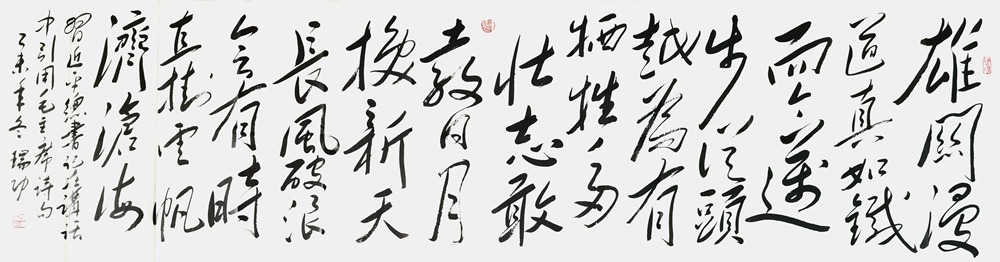 雄關漫
道真如鐵
而今邁
步從頭
越為有
牺牲多
壮志敢
教日月
換新天
長風破浪
會有時
直掛雲帆
濟滄海
習近平總書記在講話
中引用毛主席詩句
乙未年冬 瑞功